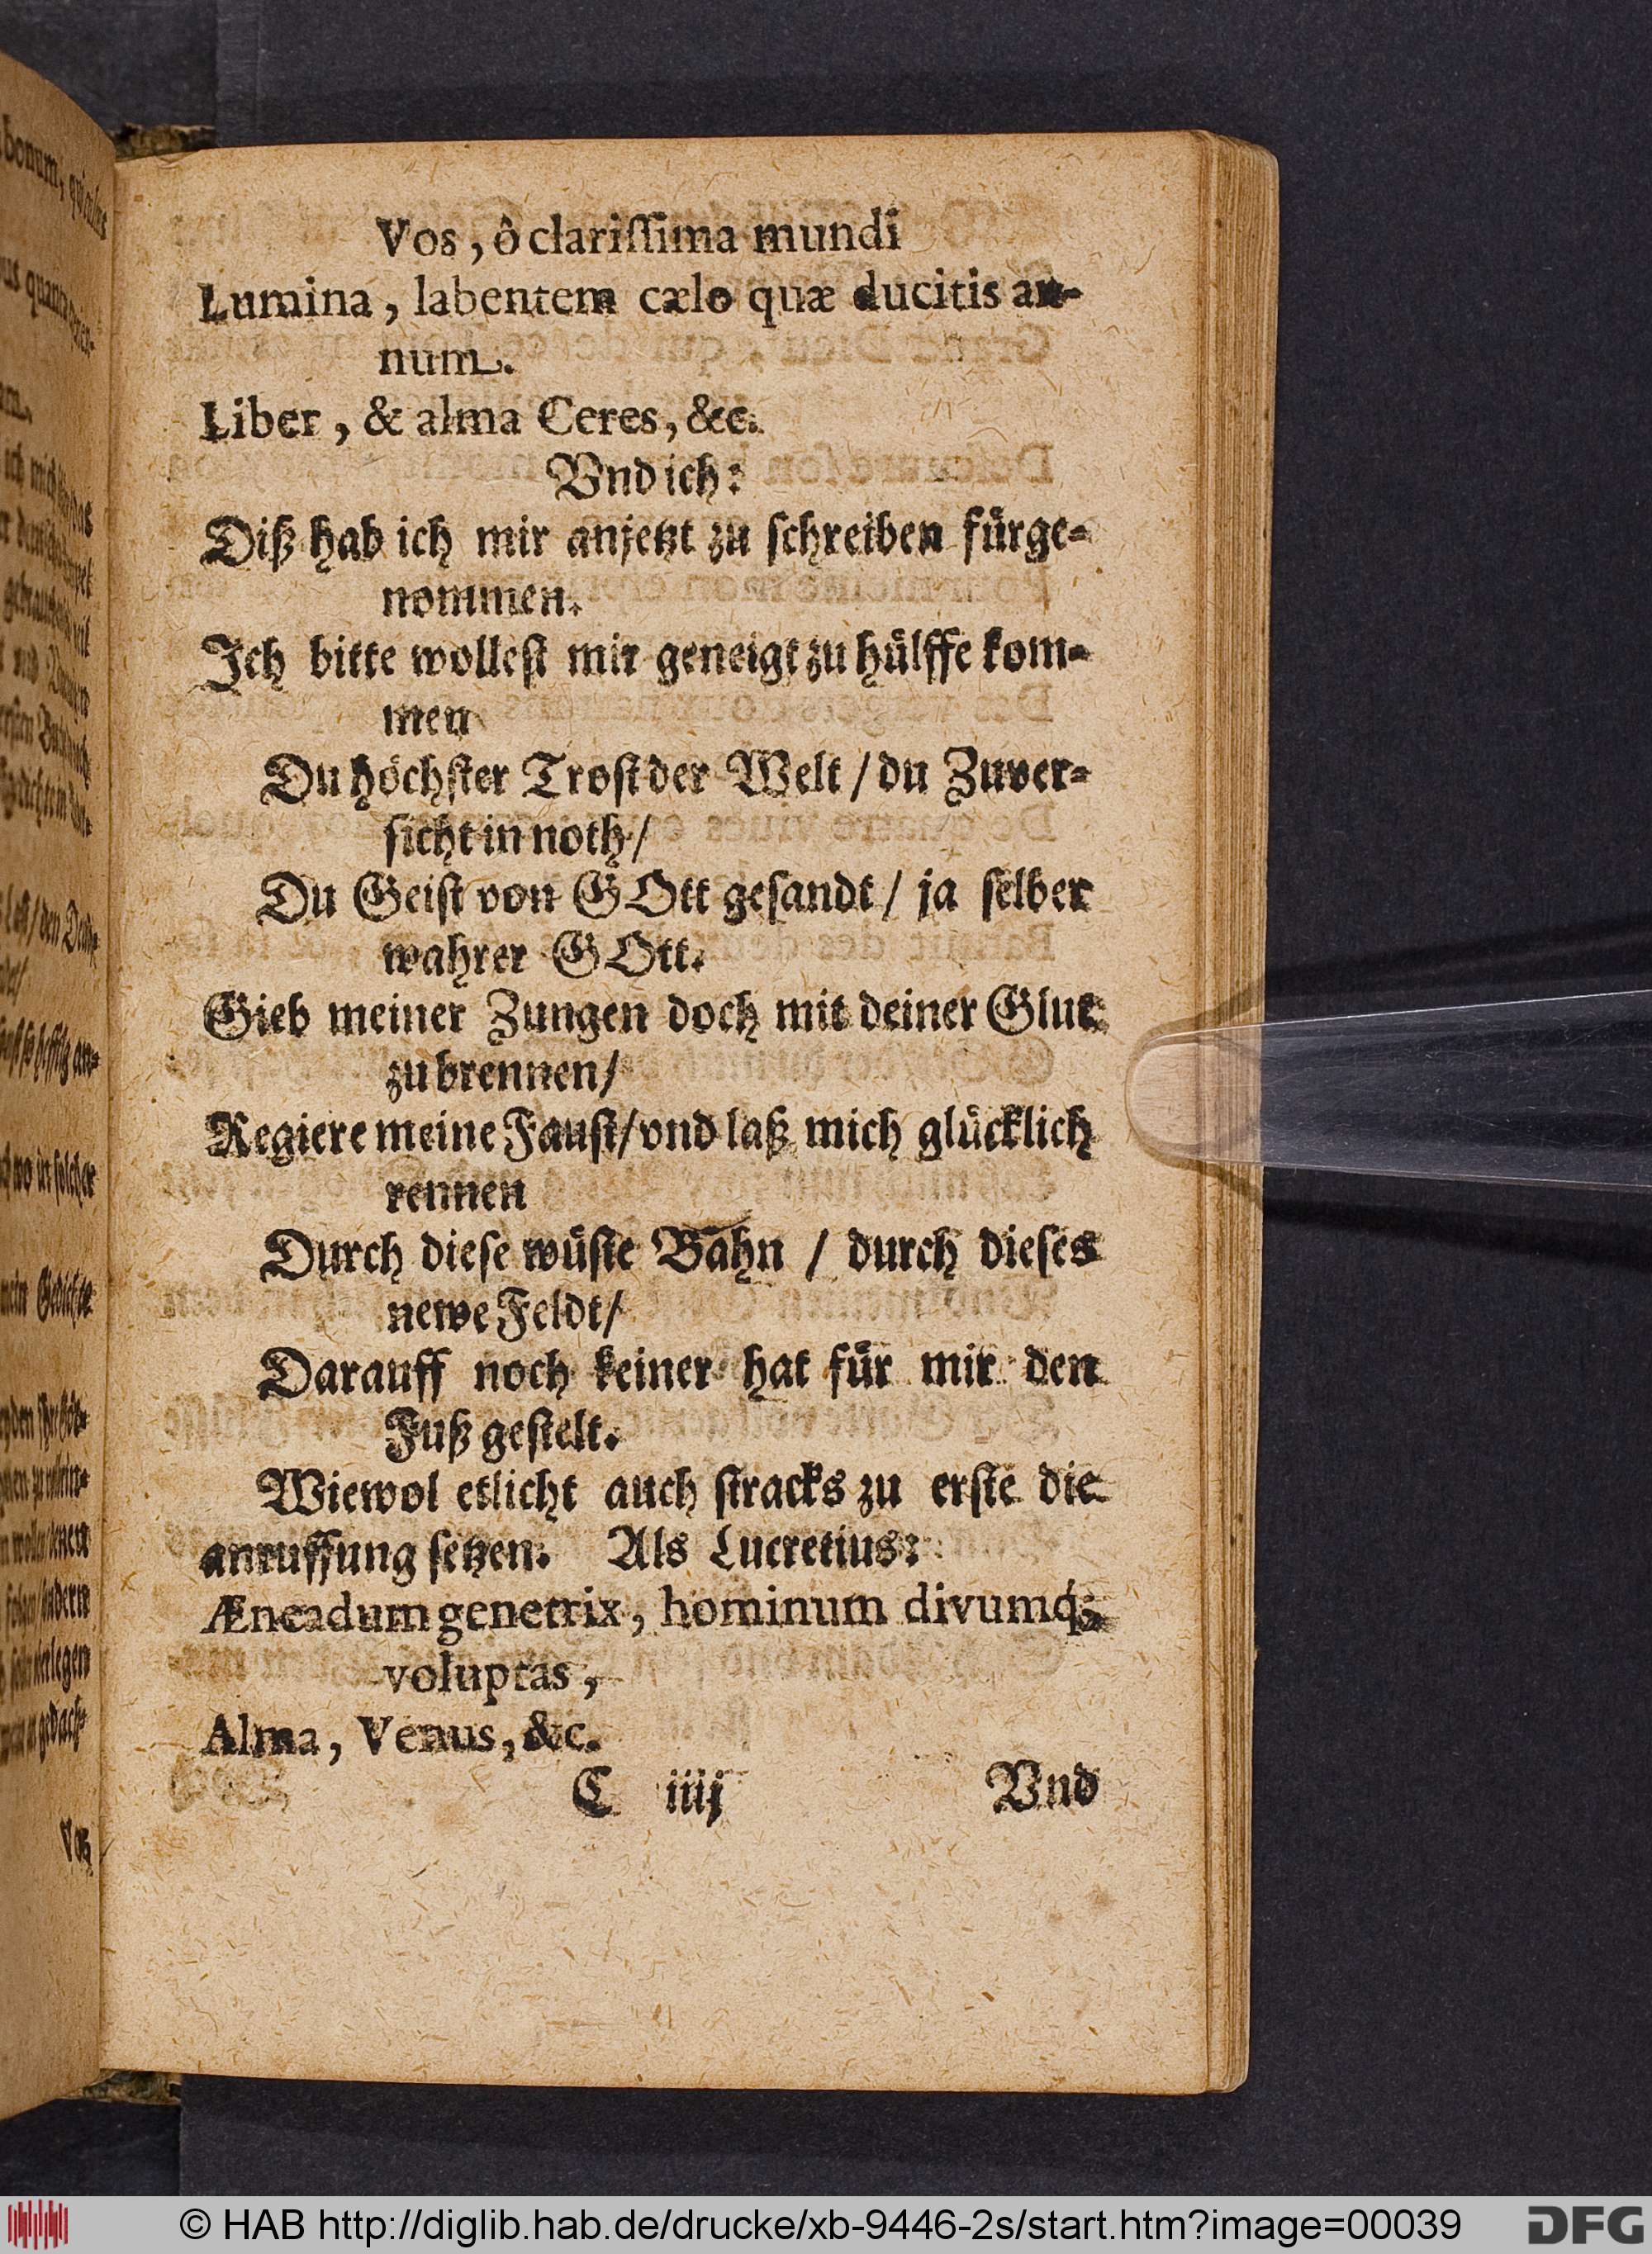 Vos, ô clariſſima mundi
Lumina, labentem cælo quæ ducitis an-
num.
Liber, & alma Ceres, &c.
Vnd ich:
Diß hab ich mir anjetzt zu ſchreiben fürge-
nommen.
Ich bitte wolleſt mir geneigt zu hülffe kom-
men
Du höchſter Troſt der Welt / du Zuver-
ſicht in noth /
Du Geiſt von GOtt geſandt / ja ſelber
wahrer GOtt.
Gieb meiner Zungen doch mit deiner Glut
zu brennen /
Regiere meine Fauſt / vnd laß mich glücklich
rennen
Durch dieſe wüſte Bahn / durch dieſes
newe Feldt /
Darauff noch keiner hat für mir den
Fuß geſtelt.
Wiewol etlicht auch ſtracks zu erſte die
anruffung ſetzen. Als Lucretius:
Æneadum genetrix, hominum divumq́;
voluptas,
Alma, Venus, &c.
C iiij Vnd
© HAB http://diglib.hab.de/drucke/xb-9446-2s/start.htm?image=00039
DFG